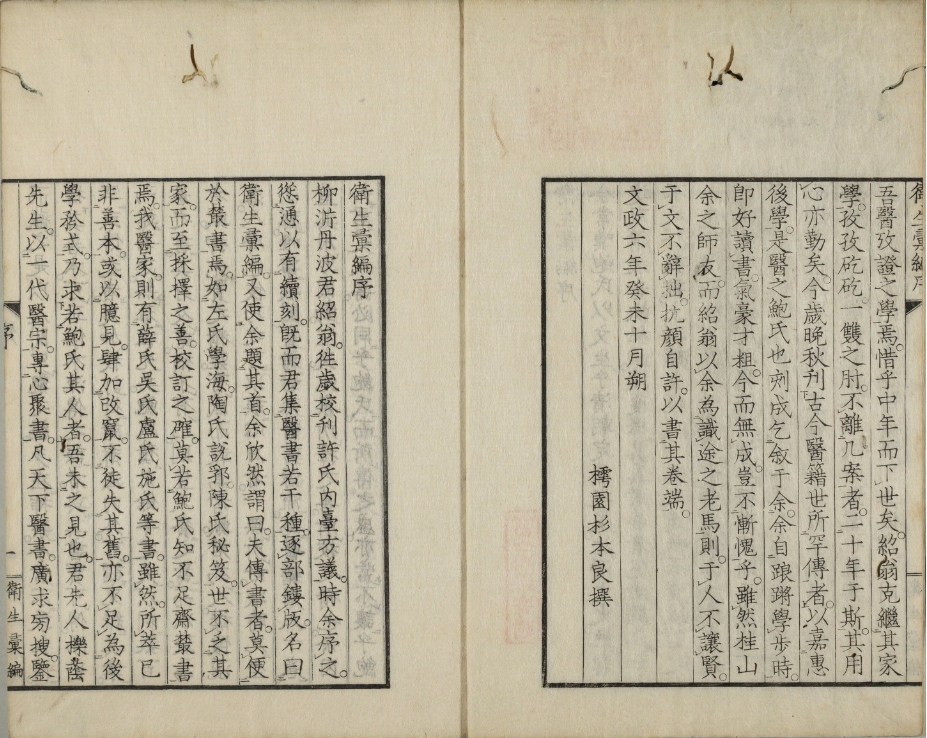 衛生彙編序
吾醫攷證之學焉。惜乎中年而下世矣。紹翁克繼其家
學。孜孜矻矻。一雙之肘。不離几案者。二十年于斯。其用
心亦勤矣。今歲晚秋刊古今醫籍世所罕傳者。以嘉惠
後學。是醫之鮑氏也。刻成乞敘于余。余自踉蹡學步時。
卽好讀書。氣豪才粗。今而無成。豈不慚愧乎。雖然桂山
余之師友。而紹翁以余為識途之老馬。則于人不讓賢。
于文不辭拙。抗顏自許。以書其卷端。
文政六年癸未十月朔
樗園杉本良撰
衛生彙編序
柳沜丹波君紹翁。徃歲校刊許氏内臺方議。時余序之。
慫慂以有續刻。旣而君集醫書若干種。逐部鏤版。名曰
衛生彙編。又使余題其首。余欣然謂曰。夫傳書者。莫便
於叢書焉。如左氏學海。陶氏說郛。陳氏秘笈。世不乏其
家。而至採擇之善。校訂之確。莫若鮑氏知不足齋叢書
焉。我醫家。則有薛氏吳氏盧氏施氏等書。雖然。所萃已
非善本。或以臆見。肆加改竄。不徒失其舊。亦不足為後
學矜式。乃求若鮑氏其人者。吾未之見也。君先人櫟蔭
先生。以一代醫宗。專心聚書。凡天下醫書。廣求匃搜。鑒
序
一
衛生彙編